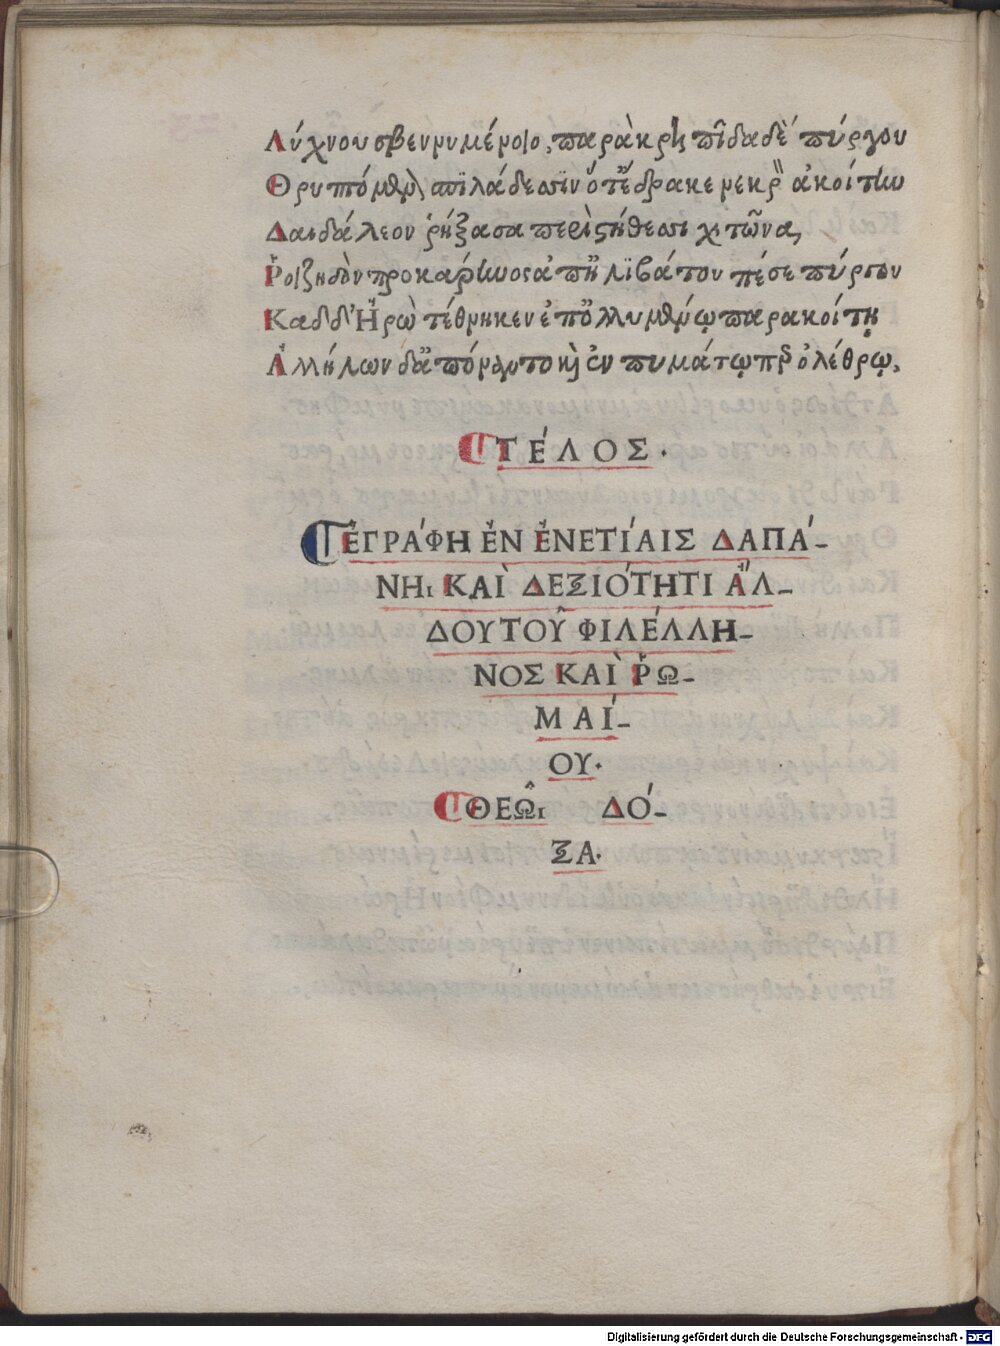 Λύχνου σβεννυμένοιο, παρὰ κρηπῖδα δὲ πύργου
Θρυπτόμενον σπιλάδεσσιν ὅτ' ἔδρακε νεκρὸν ἀκοίτην
Δαιδάλεον ῥήξασα περὶ στήθεσσι χιτῶνα,
Ῥοιζηδὸν προκάρηνος ἀπ' ἠλιβάτου πέσε πύργου
Καδδ' Ἡρὼ τέθνηκεν ἐπ' ὀλλυμένῳ παρακοίτῃ
Ἀλλήλων δ' ἀπόναντο καὶ ἐν πυμάτῳ περ ὀλέθρῳ.
ΤΈΛΟΣ.
ἘΓΡΆΦΗ ἘΝ ἘΝΕΤΊΑΙΣ ΔΑΠΆ-
ΝΗι ΚΑῚ ΔΕΞΙΌΤΗΤΙ ἌΛ-
ΔΟΥ ΤΟΥ͂ ΦΙΛΈΛΛΗ-
ΝΟΣ ΚΑῚ ῬΩ-
ΜΑΊ-
ΟΥ.
ΘΕΩ͂ι ΔΌ-
ΞΑ.
Digitalisierung gefördert durch die Deutsche Forschungsgemeinschaft - DFG